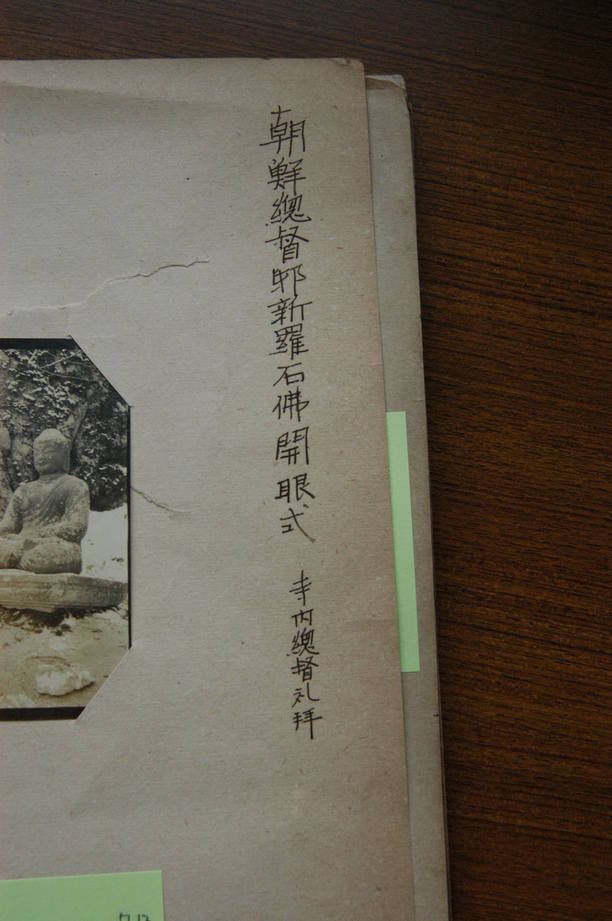 朝鮮總督邸新羅石佛開眼式 寺内總督礼拜